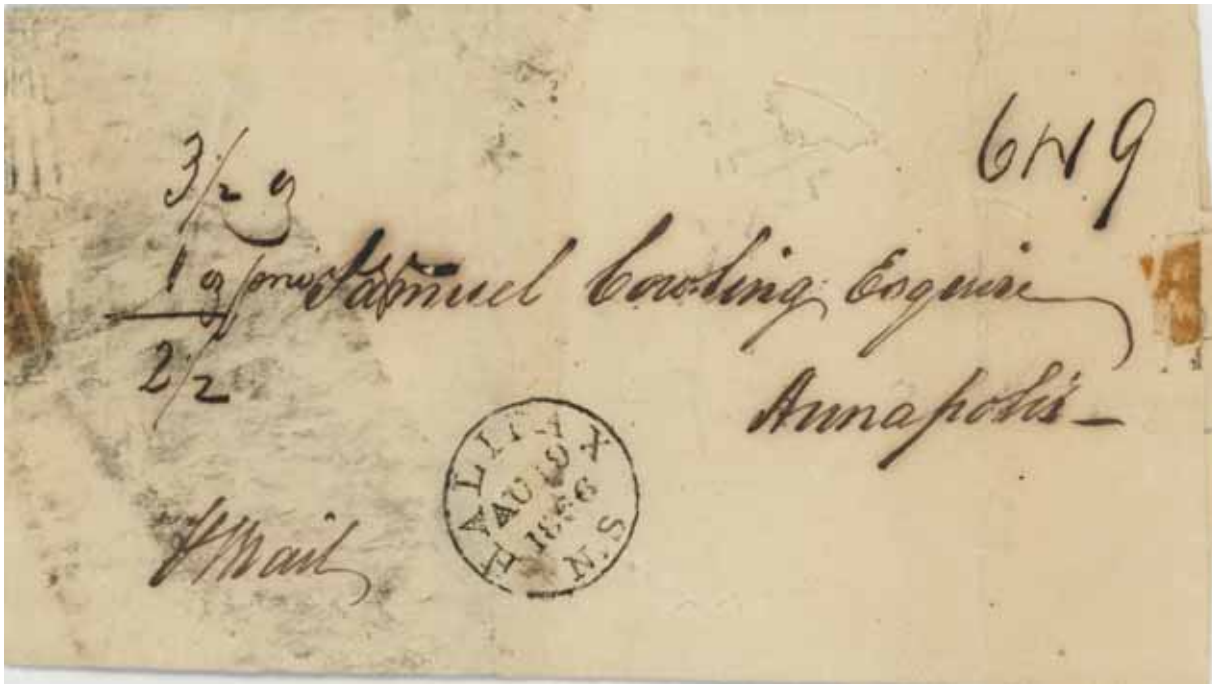 6N9
3/2
1
Samuel Cowling Esquire
2/2
Annapolis -
HALIFAX
AU 10
1836
N.S
Mail